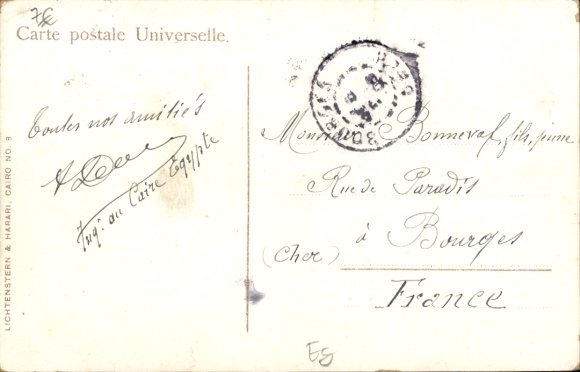 7€
Carte postale Universelle.
Toutes nos amitiés
Ingr. au Caire Egypte
BOURGES
Monsieur Bonneval fils, jeune
Rue de Paradis
à Bourges
(Cher)
France
Eg
LICHTENSTERN & HARARI, CAIRO NO. 9